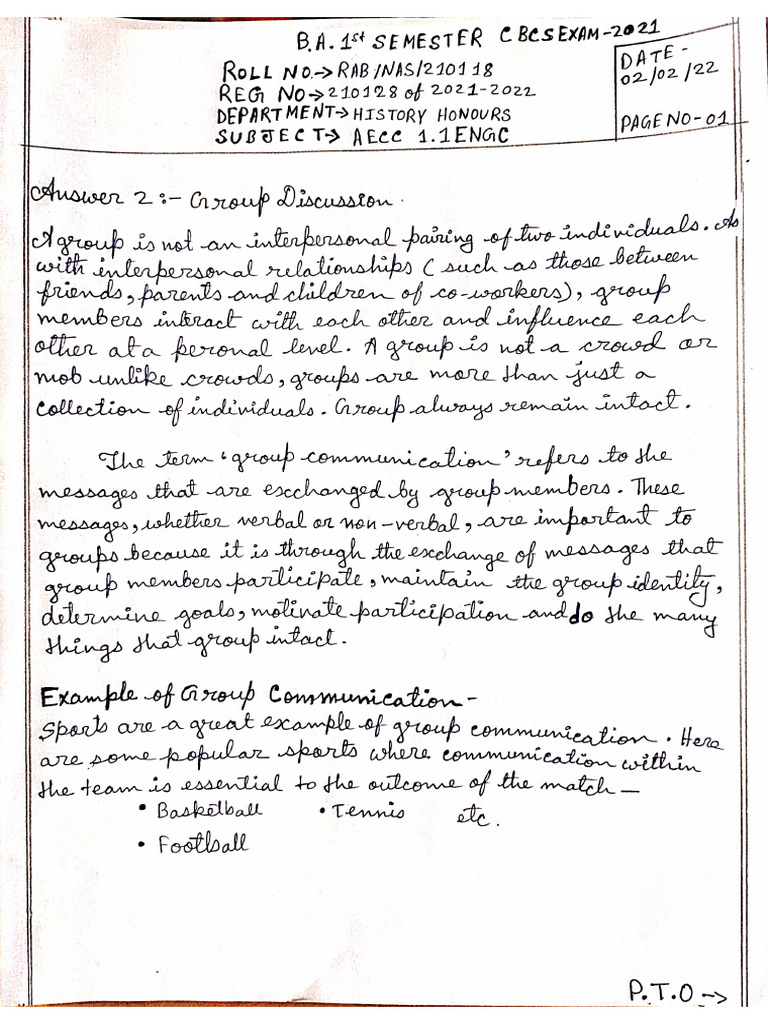 B.A. 1st SEMESTER CBCS EXAM-2021
ROLL NO.→ RAB/NAS/210118
REG NO→210128 of 2021-2022
DEPARTMENT→ HISTORY HONOURS
SUBJECT→ AECC 1.1ENGC
DATE-
02/02/22
PAGE NO-01
Answer 2:- Group Discussion.
A group is not an interpersonal pairing of two individuals. As
with interpersonal relationships ( such as those between
friends, parents and children of co-workers), group
members interact with each other and influence each
other at a peronal level. A group is not a crowd or
mob unlike crowds, groups are more than just a
collection of individuals. Group always remain intact.
The term 'group communication' refers to the
messages that are exchanged by group members. These
messages, whether verbal or non-verbal, are important to
groups because it is through the exchange of messages that
group members participate, maintain the group identity,
determine goals, motivate participation and do the many
things that group intact.
Example of Group Communication-
Sports are a great example of group communication. Here
are some popular sports where communication within
the team is essential to the outcome of the match—
• Basketball • Tennis etc.
• Football
P.T.O →